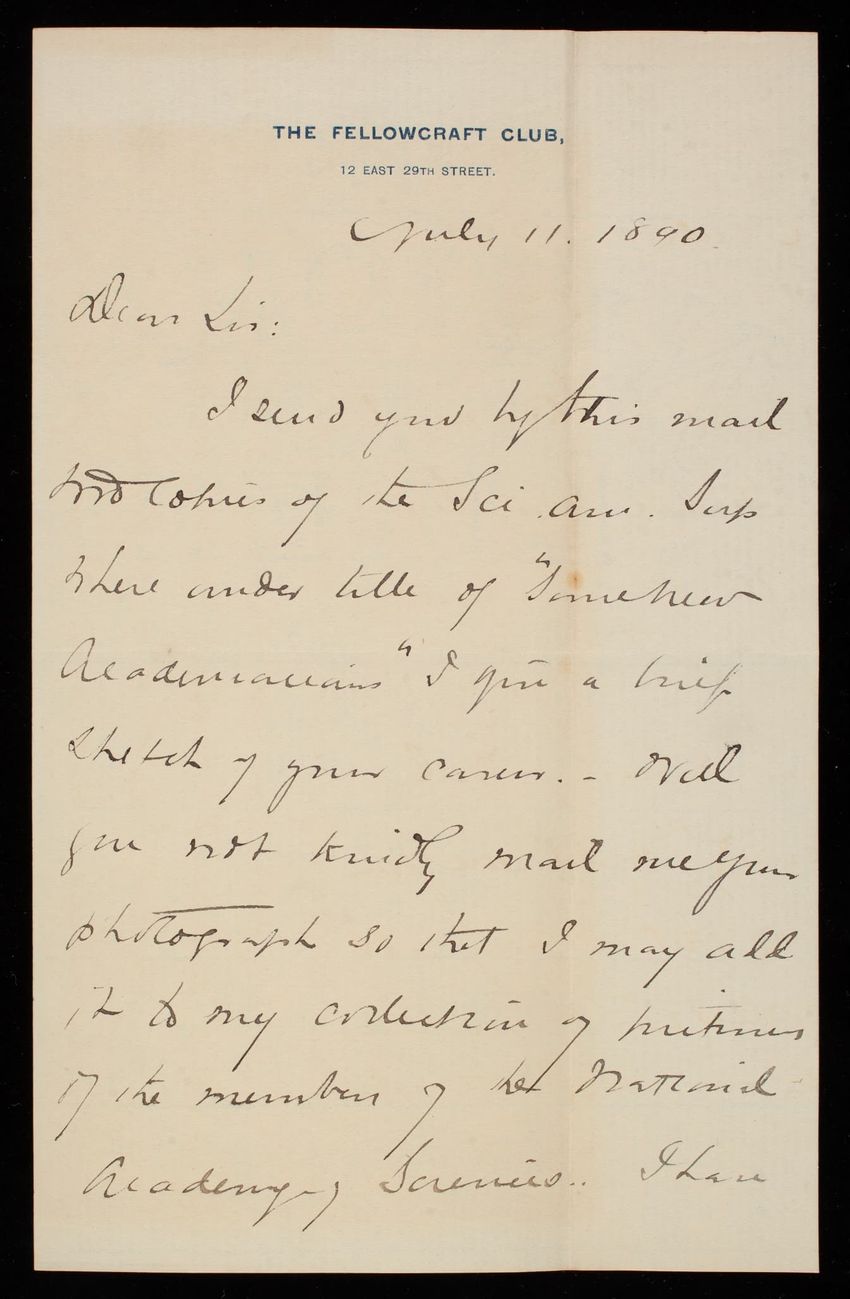 THE FELLOWCRAFT CLUB,
12 EAST 29TH STREET.
July 11. 1890.
Dear Sir:
I send you by this mail
two copies of the Sci. Am. Sup
where under title of "Some new
Academicians" I give a brief
sketch of your career. - Will
you not kindly mail me your
photograph so that I may add
it to my collection of pictures
of the members of the National
Academy of Sciences.. I have